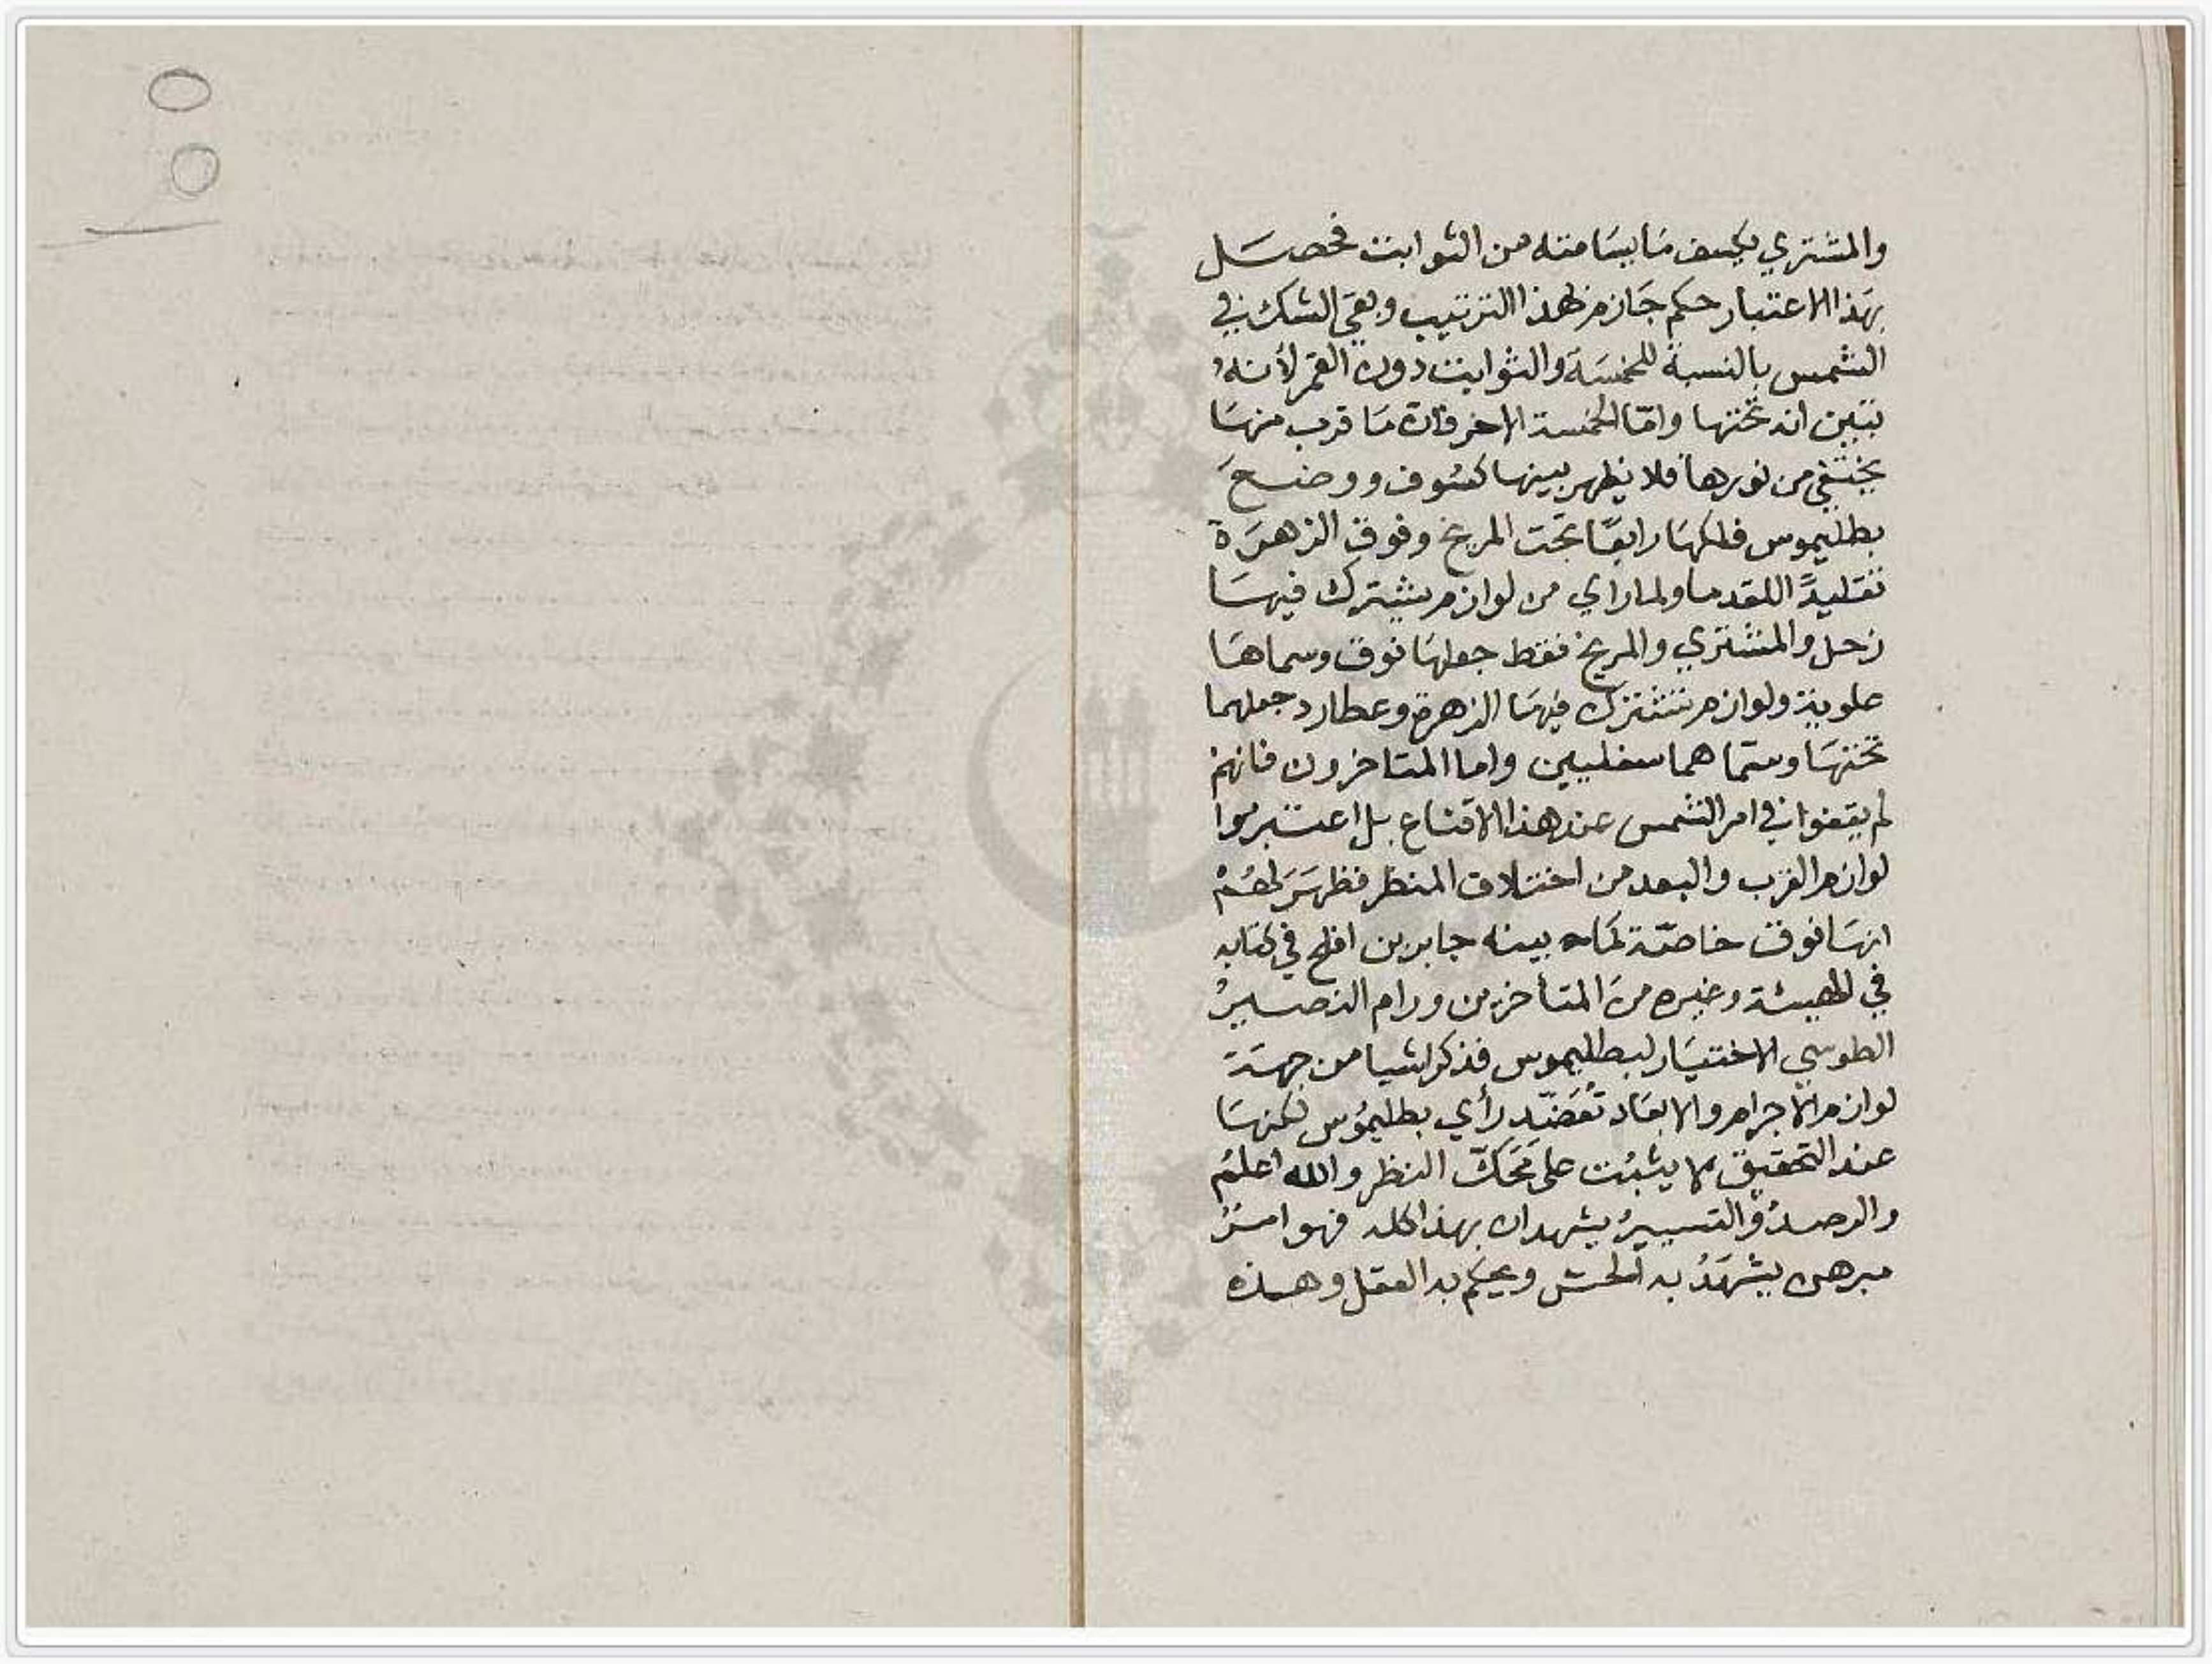 والمشتري يكسف مَا يسَامته من الثوابت فحصَل
بهَذا الاعتبار حكم جَازم لهذا الترتيب وبقيَ الشك في
الشمس بالنسبة للخمسَة والثوابت دون القمر لأنهُ
تبين انه تحتها وامّا الخمسة الاخر فان مَا قرب منهَا
يختفي من نورها فلا يظهر بينها كسُوف ووضعَ
بطليموس فلكهَا رابعًا تحت المريخ وفوق الزهرَة
تقليدًا للقدما ولما راي من لوازم يشترك فيهَا
زحل والمشتري والمريخ فقط جعلهَا فوق وسماهَا
علوية ولوازم تشترك فيهَا الزهرة وعطارد جعلهما
تحتهَا وسمّاهما سفليين واما المتاخرون فانهم
لم يقفوا في امر الشمس عند هذا الاقناع بل اعتبروا
لوازم القرب والبعد من اختلاف المنظر فظهَرَ لهُمْ
انهَا فوق خاصّة كمَا بينه جابر بن افلح في كتابه
في الهيئة وغيره منَ المتأخرين ورام النصيرُ
الطوسي الاختيَار لبطليموس فذكر اشيا من جهَة
لوازم الاجرام والابعَاد تُعَضّد رأي بطليمُوس لكنهَا
عند التحقيق لا يثبُت على مَحَكّ النظر والله اعلمُ
والرصدُ والتسييرُ يشهدان بهذا كله فهو امرٌ
مبرهن يشهَدُ به الحسّ ويحكم به العقل وهـذه